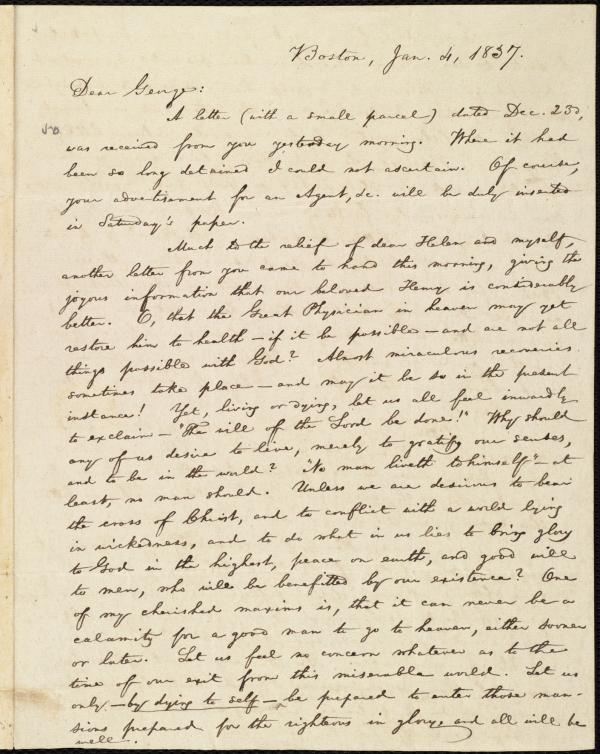 Boston, Jan. 4, 1837.
Dear George:
A letter (with a small parcel) dated Dec. 23d,
was received from you yesterday morning. Where it had
been so long detained I could not ascertain. Of course,
your advertisement for an Agent, &c. will be duly inserted
in Saturday's paper.
Much to the relief of dear Helen and myself,
another letter from you came to hand this morning, giving the
joyous information that our beloved Henry is considerably
better. O, that the Great Physician in heaven may yet
restore him to health — if it be possible — and are not all
things possible with God? Almost miraculous recoveries
sometimes take place — and may it be so in the present
instance! Yet, living or dying, let us all feel inwardly
to exclaim — "The will of the Lord be done!" Why should
any of us desire to live, merely to gratify our senses,
and to be in the world? "No man liveth to himself" — at
least, no man should. Unless we are desirous to bear
the cross of Christ, and to conflict with a world lying
in wickedness, and to do what in us lies to bring glory
to God in the highest, peace on earth, and good will
to men, who will be benefitted by our existence? One
of my cherished maxims is, that it can never be a
calamity for a good man to go to heaven, either sooner
or later. Let us feel no concern whatever as to the
time of our exit from this miserable world. Let us
only — by dying to self — be prepared to enter those man-
sions prepared for the righteous in glory, and all will be
well.